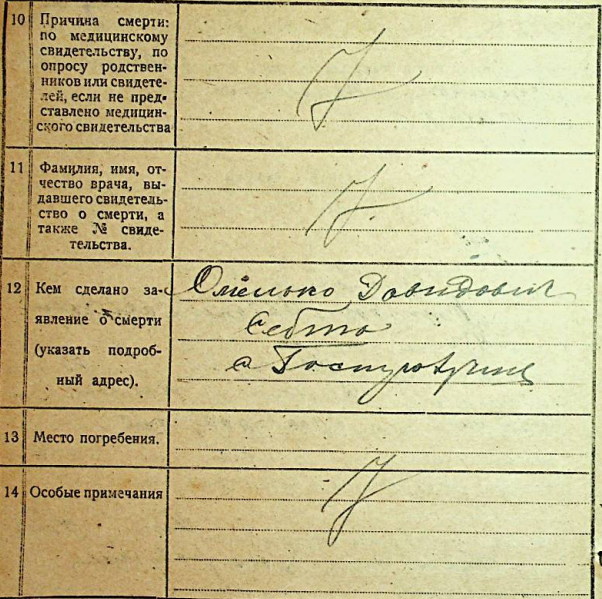 10 Причина смерти:
по медицинскому
свидетельству, по
опросу родствен-
ников или свидете-
лей, если не пред-
ставлено медицин-
ского свидетельства
11 Фамилия, имя, от-
чество врача, вы-
давшего свидетель-
ство о смерти, а
также № свиде-
тельства.
12 Кем сделано за-
явление о смерти
(указать подроб-
ный адрес).
Давидович
13 Место погребения.
14 Особые примечания